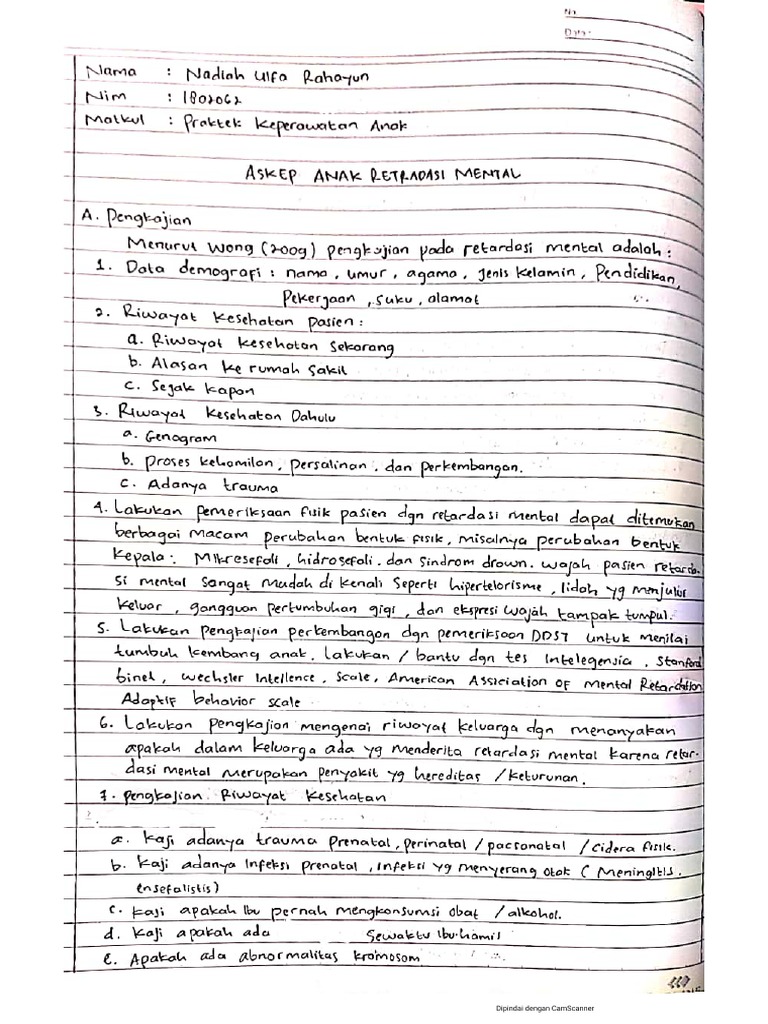 No
Date:
Nama : Nadiah Ulfa Rahayun
Nim : 1802062
Matkul : Praktek Keperawatan Anak
ASKEP ANAK RETRADASI MENTAL
A. Pengkajian
Menurut Wong (2009) pengkajian pada retardasi mental adalah :
1. Data demografi : nama, umur, agama, jenis kelamin, Pendidikan,
Pekerjaan, suku, alamat
2. Riwayat Kesehatan pasien :
a. Riwayat kesehatan sekarang
b. Alasan ke rumah sakit
c. Sejak kapan
3. Riwayat Kesehatan Dahulu
a. Genogram
b. Proses kehamilan, persalinan. dan perkembangan.
c. Adanya trauma
4. Lakukan pemeriksaan fisik pasien dgn retardasi mental dapat ditemukan
berbagai macam perubahan bentuk fisik, misalnya perubahan bentuk
Kepala : Mikresefoli, hidrosefoli. dan sindrom drown. wajah pasien retarda-
si mental sangat mudah di kenali seperti hipertelorisme, lidah yg menjulur
keluar, gangguan pertumbuhan gigi, dan ekspresi wajah tampak tumpul.
5. Lakukan pengkajian perkembangan dgn pemeriksaan DDST untuk menilai
tumbuh kembang anak. Lakukan / bantu dgn tes intelegensia. Stanford
binet, wechsler Intellence. Scale, American Assiciation of Mental Retardation
Adaptif behavior scale
6. Lakukan pengkajian mengenai riwayat keluarga dgn menanyakan
apakah dalam keluarga ada yg menderita retardasi mental karena retar-
dasi mental merupakan penyakit yg hereditas / keturunan.
7. Pengkajian Riwayat Kesehatan
a. Kaji adanya trauma prenatal, perinatal / pacsonatal / cidera fisik.
b. Kaji adanya infeksi prenatal, infeksi yg menyerang otak ( Meningitis.
ensefalistis)
c. Kaji apakah Ibu pernah mengkonsumsi obat / alkohol.
d. Kaji apakah ada sewaktu ibu hamil
e. Apakah ada abnormalitas kromosom
Dipindai dengan CamScanner